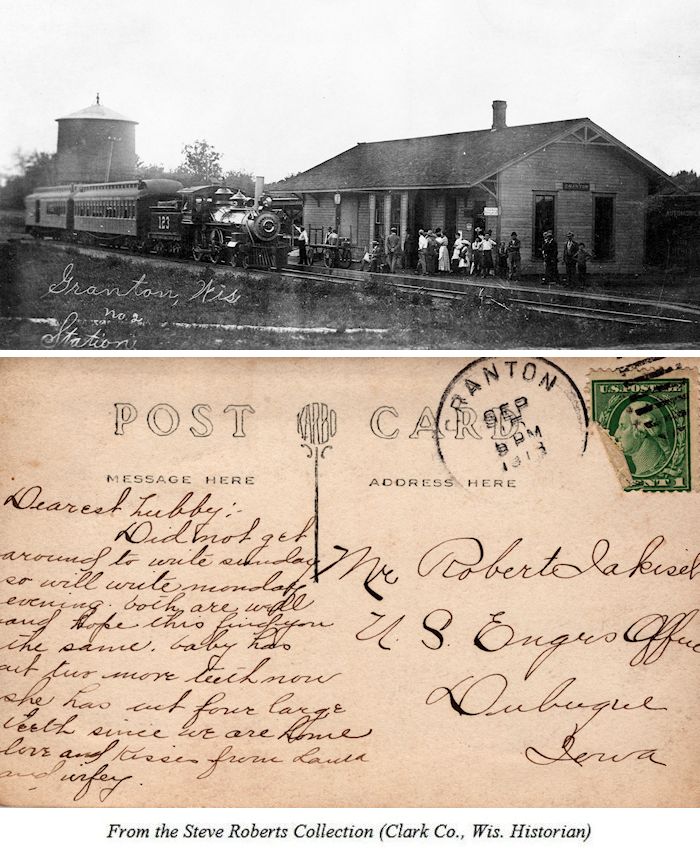 123
GRANTON
Granton, Wis
no 2
Station
POST CARD
KARBO
MESSAGE HERE
ADDRESS HERE
RANTON
SEP
8 PM
1913
U.S. POSTAGE
CENT 1
Dearest hubby:-
Did not get
around to write sunday
so will write monday
evening. both are well
and hope this find you
the same. baby has
cut two more teeth now
she has cut four large
teeth since we are home
love and kisses from
and wifey.
Mr Robert Jakisel
U. S. Engrs Office
Dubuque
Iowa
From the Steve Roberts Collection (Clark Co., Wis. Historian)